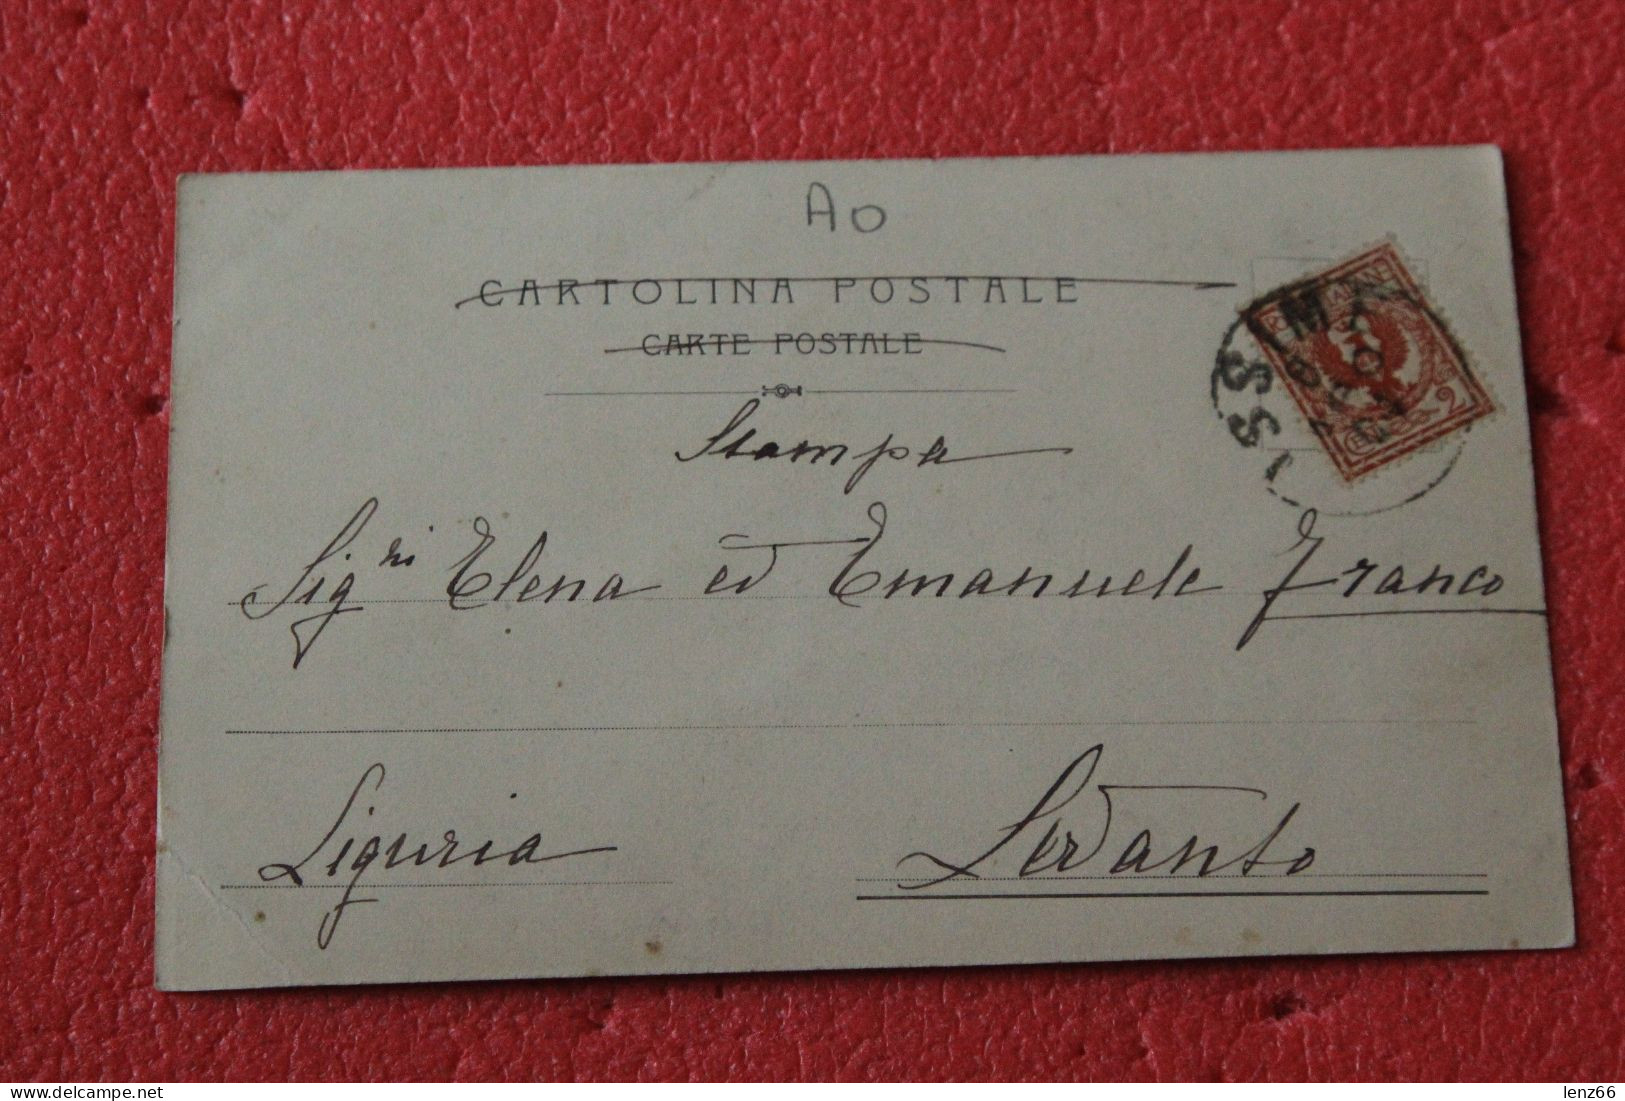 AO
CARTOLINA POSTALE
CARTE POSTALE
Stampa
Sig.ri Elena ed Emanuele Franco
Liguria
Levanto
lenz66